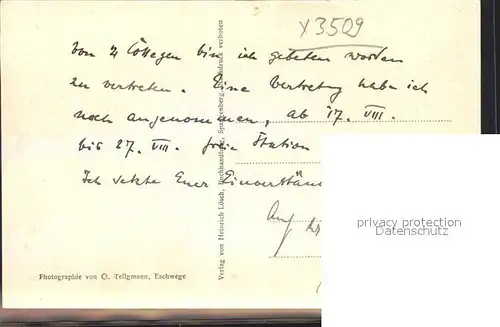 x3509
Von 2 Collegen bin ich gebeten worden
zu vertreten. Eine Vertretung habe ich
noch angenommen, ab 17. VIII.
bis 27. VIII. freie Station
Ich setzte Euer Einverstän
Auf
privacy protection
Datenschutz
Photographie von O. Tellgmann, Eschwege
Verlag von Heinrich Lösch, Buchhandlung, Spangenberg druck verboten